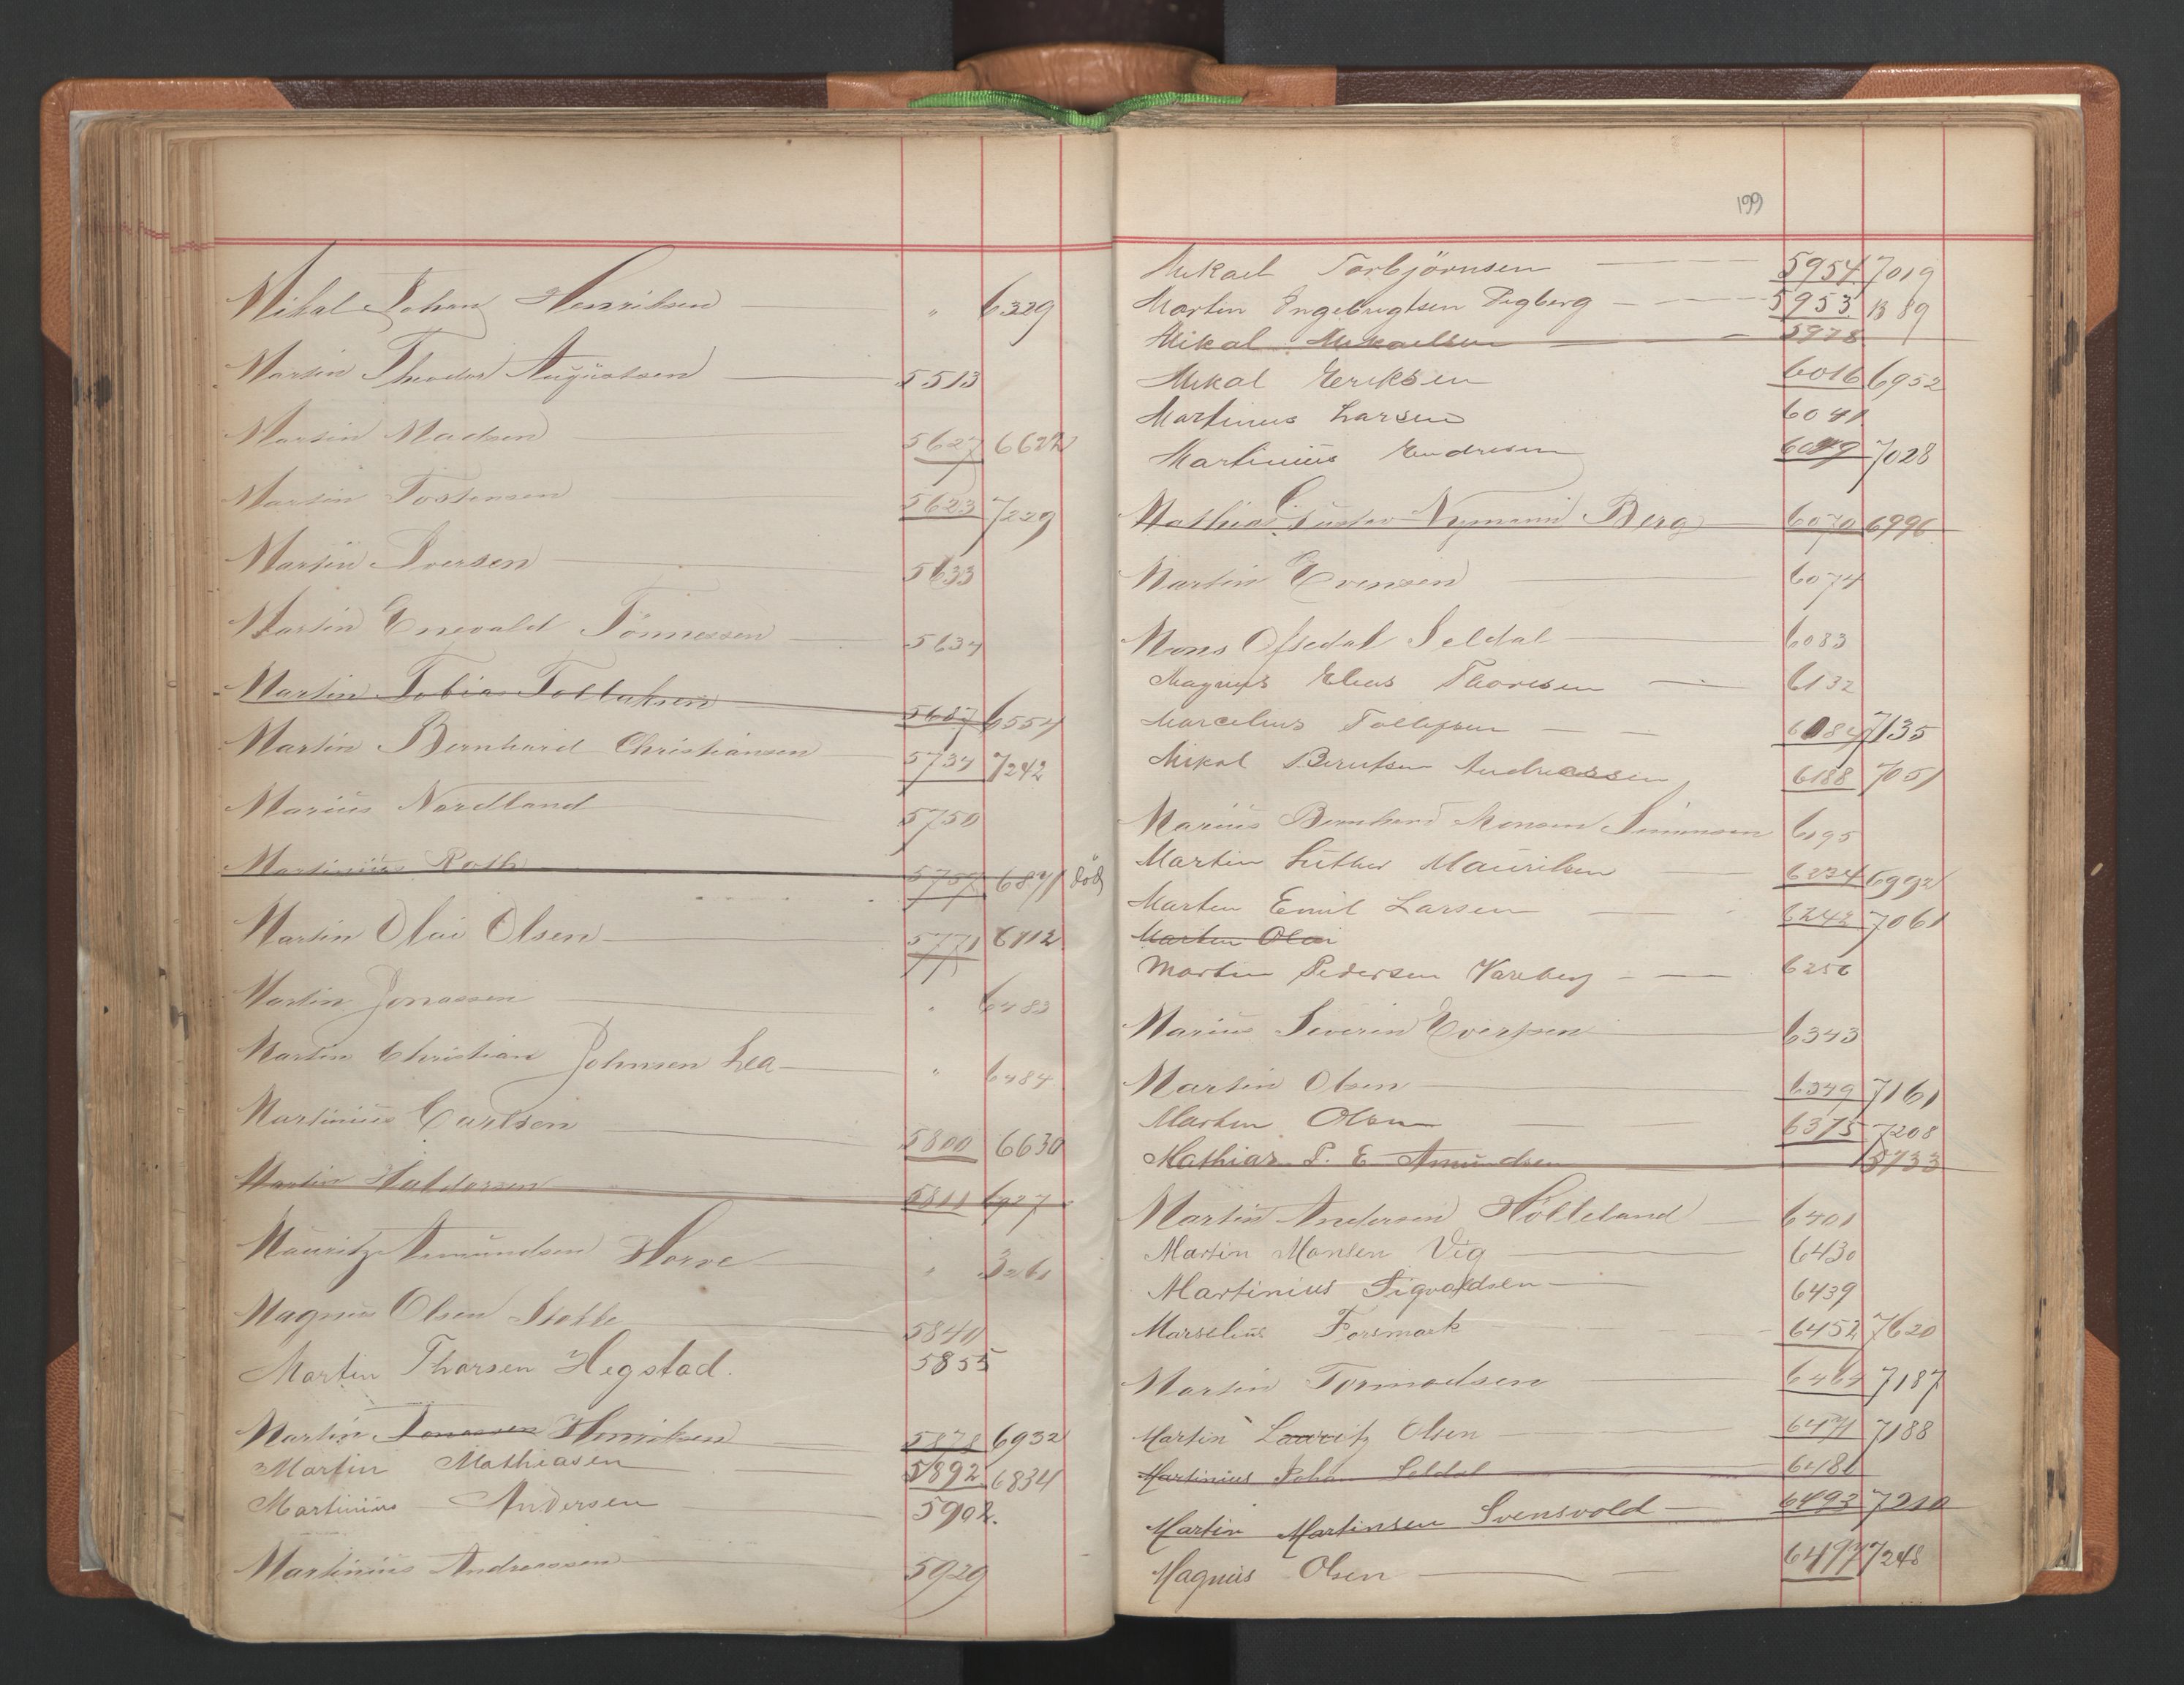 Mikal Johan Henriksen — " 6329
Martin Theodor Augustsen — 5513
Martin Madsen — 5627 6622
Martin Tostensen — 5623 7229
Martin Iversen — 5633
Martin Enevald Tönnessen — 5634
Martin Tobias Tollaksen 5687 6554
Martin Bernhard Christiansen — 5734 7242
Marius Nordland — 5750
Martinius Roth — 5757 6871 död
Martin Olai Olsen — 5771 6712
Martin Jonassen — " 6483
Martin Christian Johnsen Lea — " 6484
Martinius Carlsen — 5800 6630
Martin Haldorsen 5811 6927
Mauritz Amundsen Horve — " 3261
Magnus Olsen Stokke — 5840
Martin Thorsen Hegstad. 5855
Martin Jonassen Henriksen — 5878 6932
Martin Mathiasen — 5892 6834
Martinius Andersen — 5902.
Martinius Andreassen — 5929
199
Mikael Torbjörnsen — 5954 7019
Martin Engebrigtsen Digberg — 5953 B 89
Mikal Mikaelsen — 5978
Mikal Eriksen 6016 6952
Martinus Larsen 6041
Martinius Endresen 6049 7028
Mathias Gustav Nymann Berg — 6070 6996
Martin Evensen — 6074
Mons Ofsedal Seldal — 6083
Magnus Elias Thoresen — 6132
Marcelius Tollefsen — 6184 7135
Mikal Berntsen Andreassen 6188 7051
Marius Bernhard Monsen Simonsen 6195
Martin Luther Mauritsen — 6234 6992
Martin Emil Larsen — 6242 7061
Martin Olai
Martin Pedersen Vareberg — 6256
Marius Severin Evertsen — 6343
Martin Olsen — 6349 7161
Martin Olsen — 6375 7208
Mathias P. E Amundsen — 5733
Martin Andersen Hölleland — 6401
Martin Monsen Vig — 6430
Martinius Sigvaldsen — 6439
Marselius Forsmark — 6452 7620
Martin Tormodsen — 6464 7187
Martin Lauritz Olsen — 6471 7188
Martinius Johan Seldal — 6486
Martin Martinsen Svensvold — 6493 7210
Magnus Olsen — 6497 7248